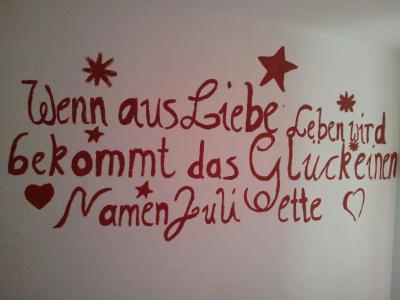 Wenn aus Liebe Leben wird
bekommt das Glück einen
Namen Juliette